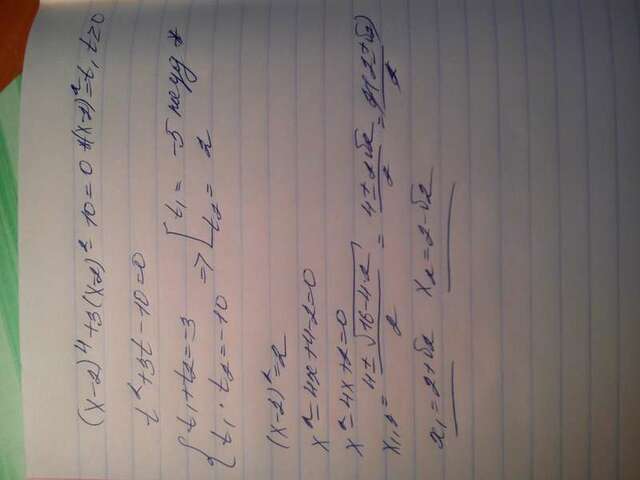 (x-2)⁴+3(x-2)²-10=0 *(x-2)²=t, t≥0
t²+3t-10=0
{t₁+t₂=-3
{t₁·t₂=-10 => [t₁=-5 не уд *
[t₂=2
(x-2)²=2
x²-4x+4-2=0
x²-4x+2=0
x₁,₂=(4±√(16-4·2))/2=(4±2√2)/2=(2(2±√2))/2
x₁=2+√2 x₂=2-√2